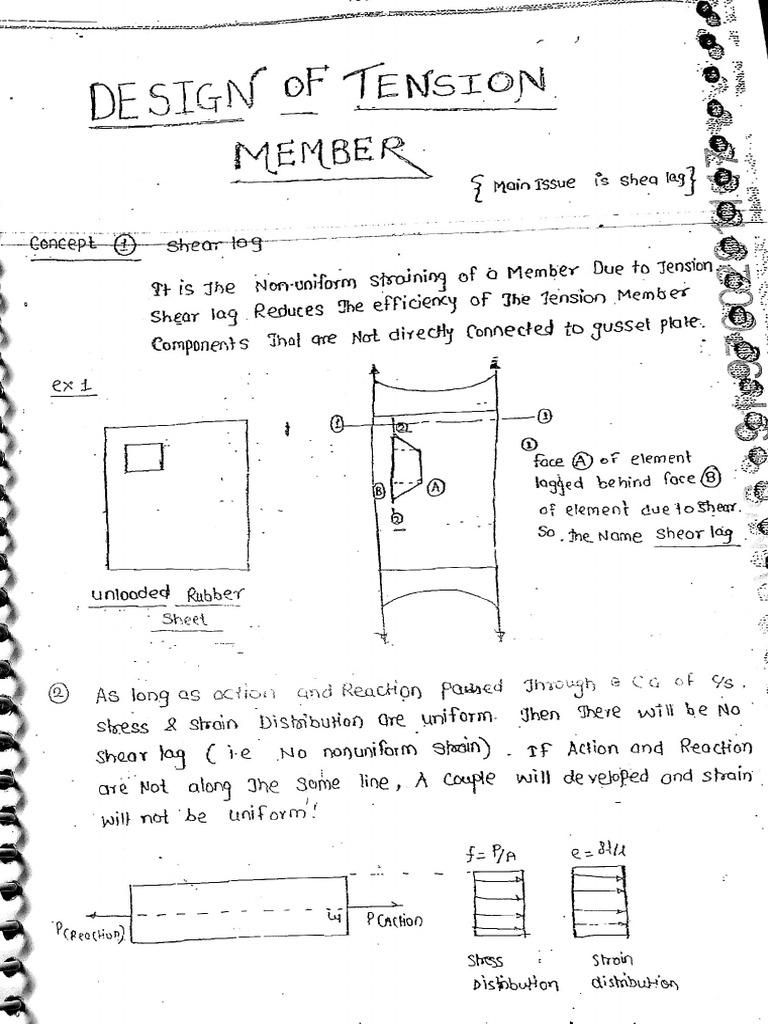 DESIGN OF TENSION
MEMBER
{ Main Issue is shea lag}
Concept ① Shear lag
It is The Non-uniform straining of a Member Due to Tension
Shear lag Reduces The efficiency of The Tension Member
Components That are Not directly Connected to gusset plate.
ex 1
① ①
②
Ⓑ Ⓐ
②
①
face Ⓐ of element
lagged behind face Ⓑ
of element due to shear.
So. The Name Shear lag
unloaded Rubber
Sheet
② As long as action and Reaction Passed Through CG of c/s.
stress & strain Distribution are uniform. Then There will be No
Shear lag ( i.e No nonuniform strain) . If Action and Reaction
are Not along The Same line, A Couple will developed and strain
will not be uniform!
f = P/A e = δl/l
P(Reaction) P(Action)
Stress : Strain
Distribution distribution